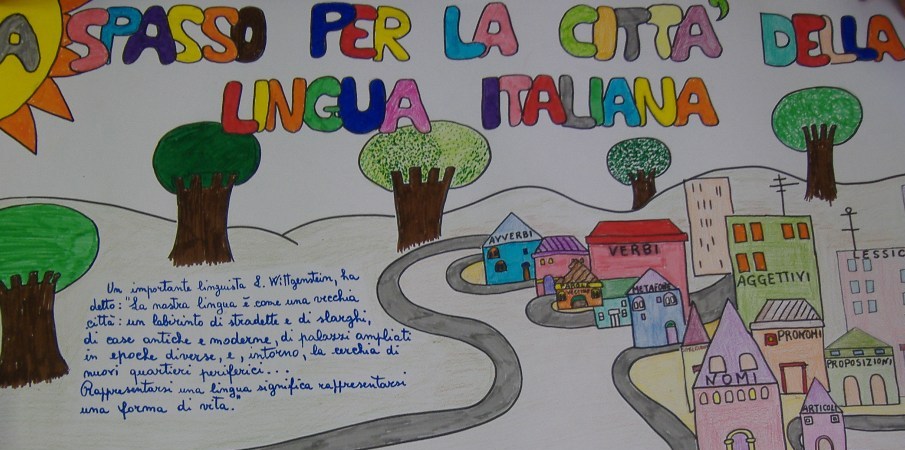 A SPASSO PER LA CITTA' DELLA
LINGUA ITALIANA
Un importante linguista L. Wittgenstein, ha
detto: "La nostra lingua è come una vecchia
città: un labirinto di stradette e di slarghi,
di case antiche e moderne, di palazzi ampliati
in epoche diverse, e, intorno, la cerchia di
nuovi quartieri periferici...
Rappresentarsi una lingua significa rappresentarsi
una forma di vita."
AVVERBI
VERBI
PAROLE
METAFORE
AGGETTIVI
LESSIC
PRONOMI
PROPOSIZIONI
NOMI
ARTICOLI